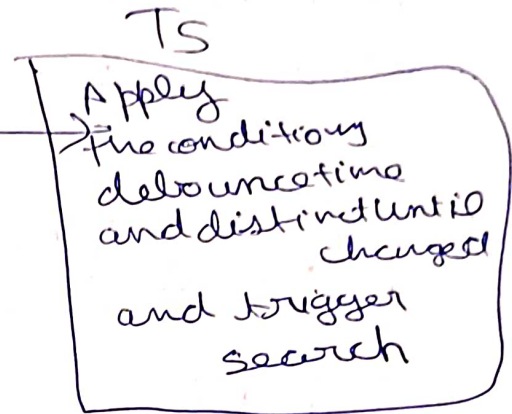 TS
Apply
the conditions
debouncetime
and distinctUntil
changed
and trigger
search